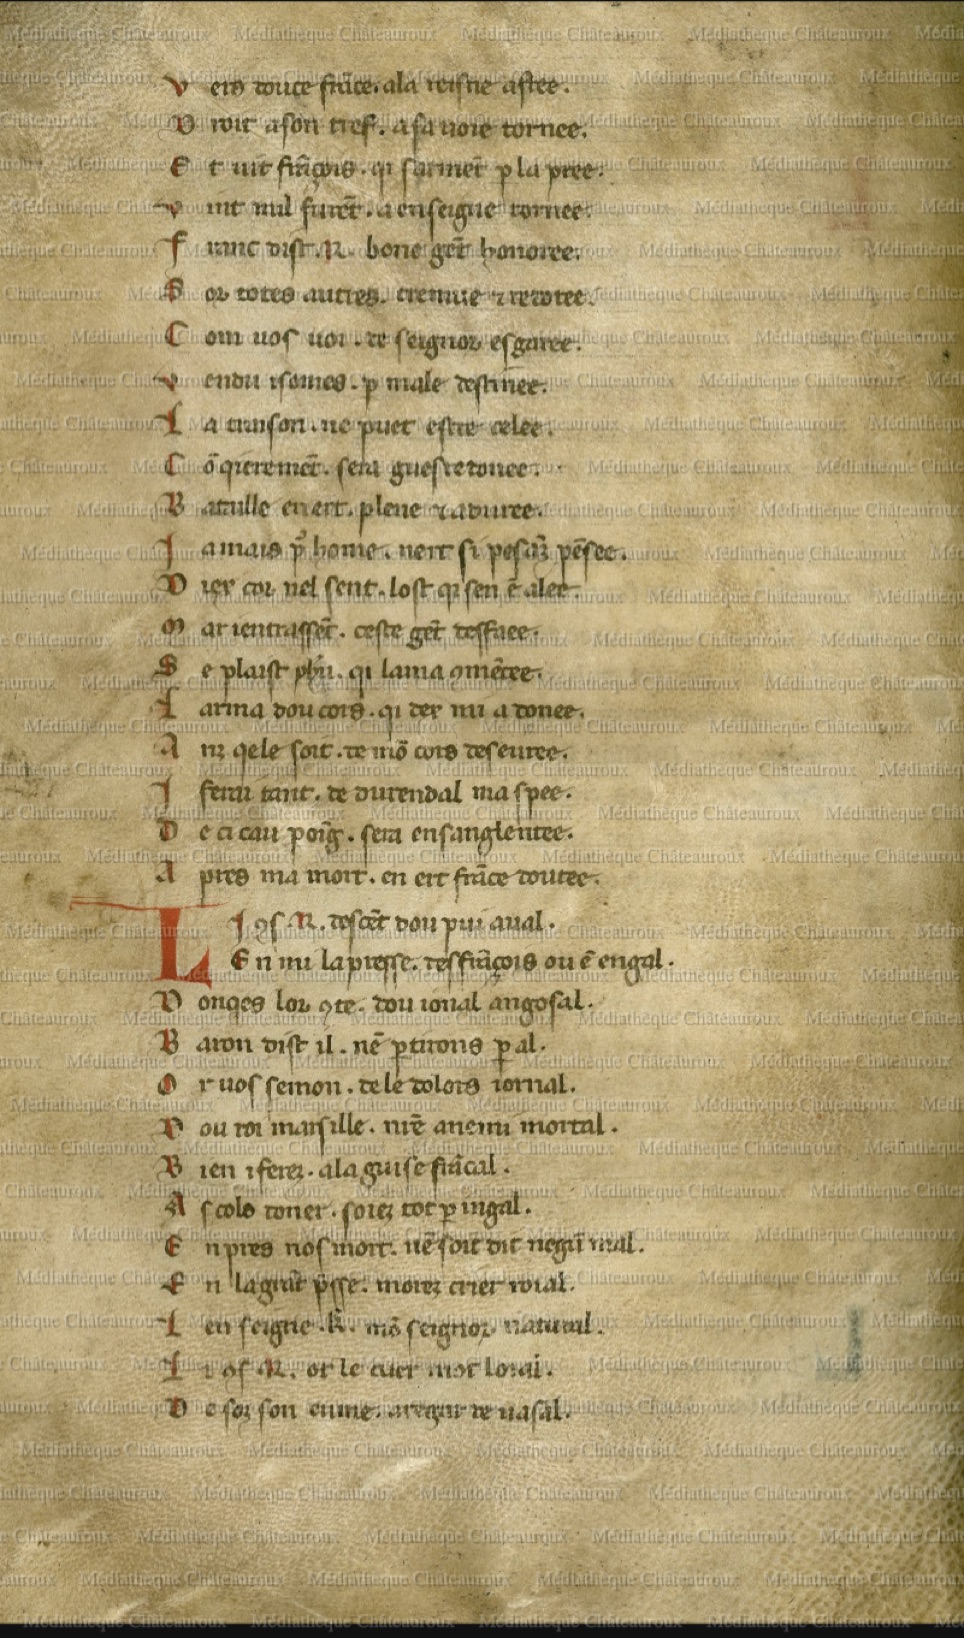 V ers douce frãce. a la resne astree.
D roit a son tref. a sa uoie tornee.
E t uit frãçois. qi sarmẽt p la pree.
V int mil furẽt. a enseigne tornee.
F ranc dist .R. bone gẽt honoree.
S or totes autres. cremue ⁊ redotee.
C om uos uoi. de seignor esgaree.
V endu i somes. p male destinee.
L a traison. ne puet estre celee.
C õ qieremẽt. sera guesredonee.
B ataille en ert. plene ⁊ aduree.
J a mais p home. nert si pesãz pẽsee.
D iex cor nel sent. lost qi sen ẽ alee.
M ar i entrassẽt. ceste gẽt desfaee.
S e plaist yhu. qi lama 9mẽcee.
L arma dou cors. qi dex mi a donee.
A nz qele soit. de mõ cors deseuree.
J ferrai tant. de durendal ma spee.
D e ci cau poĩg. sera ensanglentee.
A pres ma mort. en ert frãce doutee.
L I 9s .R. descẽt dou pui aual.
E n mi la presse. des frãçois ou ẽ engal.
D onqes lor 9te. dou ional angosal.
B aron dist il. nẽ ptirons p al.
O r uos semon. de le dolors iornal.
D ou roi marsille. nrẽ anemi mortal.
B ien i ferez. a la guise frãcal.
A s cols doner. soiez tot p ingal.
E n pres nos mort. nẽ soit dit negũ mal.
E n la grãt psse. morez crier roial.
L enseigne .K. mõ seignor natural.
L i 9s .R. ot le cuer mot loial.
D esoz son elme. a regar de uasal.